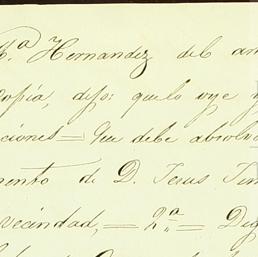 Hernandez del
copia, dijo: que lo oye y
ciones = Que debe absolve
mento de D. Jesus
vecindad, = 2.ª =